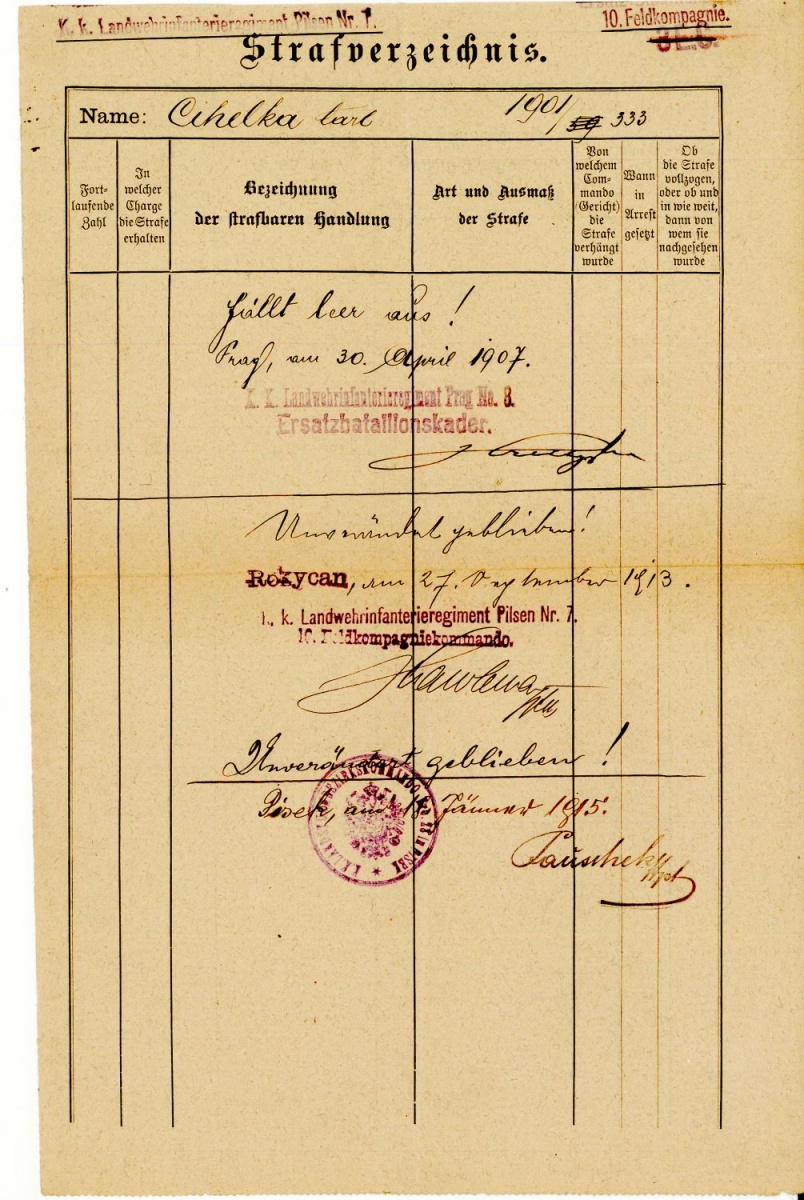 K. k. Landwehrinfanterieregiment Pilsen Nr. 7.
10. Feldkompagnie.
Strafverzeichnis.
Name: Cihelka Karl 1901/59 333
Fort-
laufende
Zahl
In
welcher
Charge
die Strafe
erhalten
Bezeichnung
der strafbaren Handlung
Art und Ausmaß
der Strafe
Von
welchem
Com-
mando
(Gericht)
die
Strafe
verhängt
wurde
Wann
in
Arrest
gesetzt
Ob
die Strafe
vollzogen,
oder ob und
in wie weit,
dann von
wem sie
nachgesehen
wurde
Fällt leer aus!
Prag, am 30. April 1907.
K. K. Landwehrinfanterieregiment Prag No. 8.
Ersatzbataillonskader.
Unverändert geblieben!
Rokycan, am 27. September 1913.
k. k. Landwehrinfanterieregiment Pilsen Nr. 7.
10. Feldkompagniekommando.
Unverändert geblieben!
Pisek, am Jänner 1915.